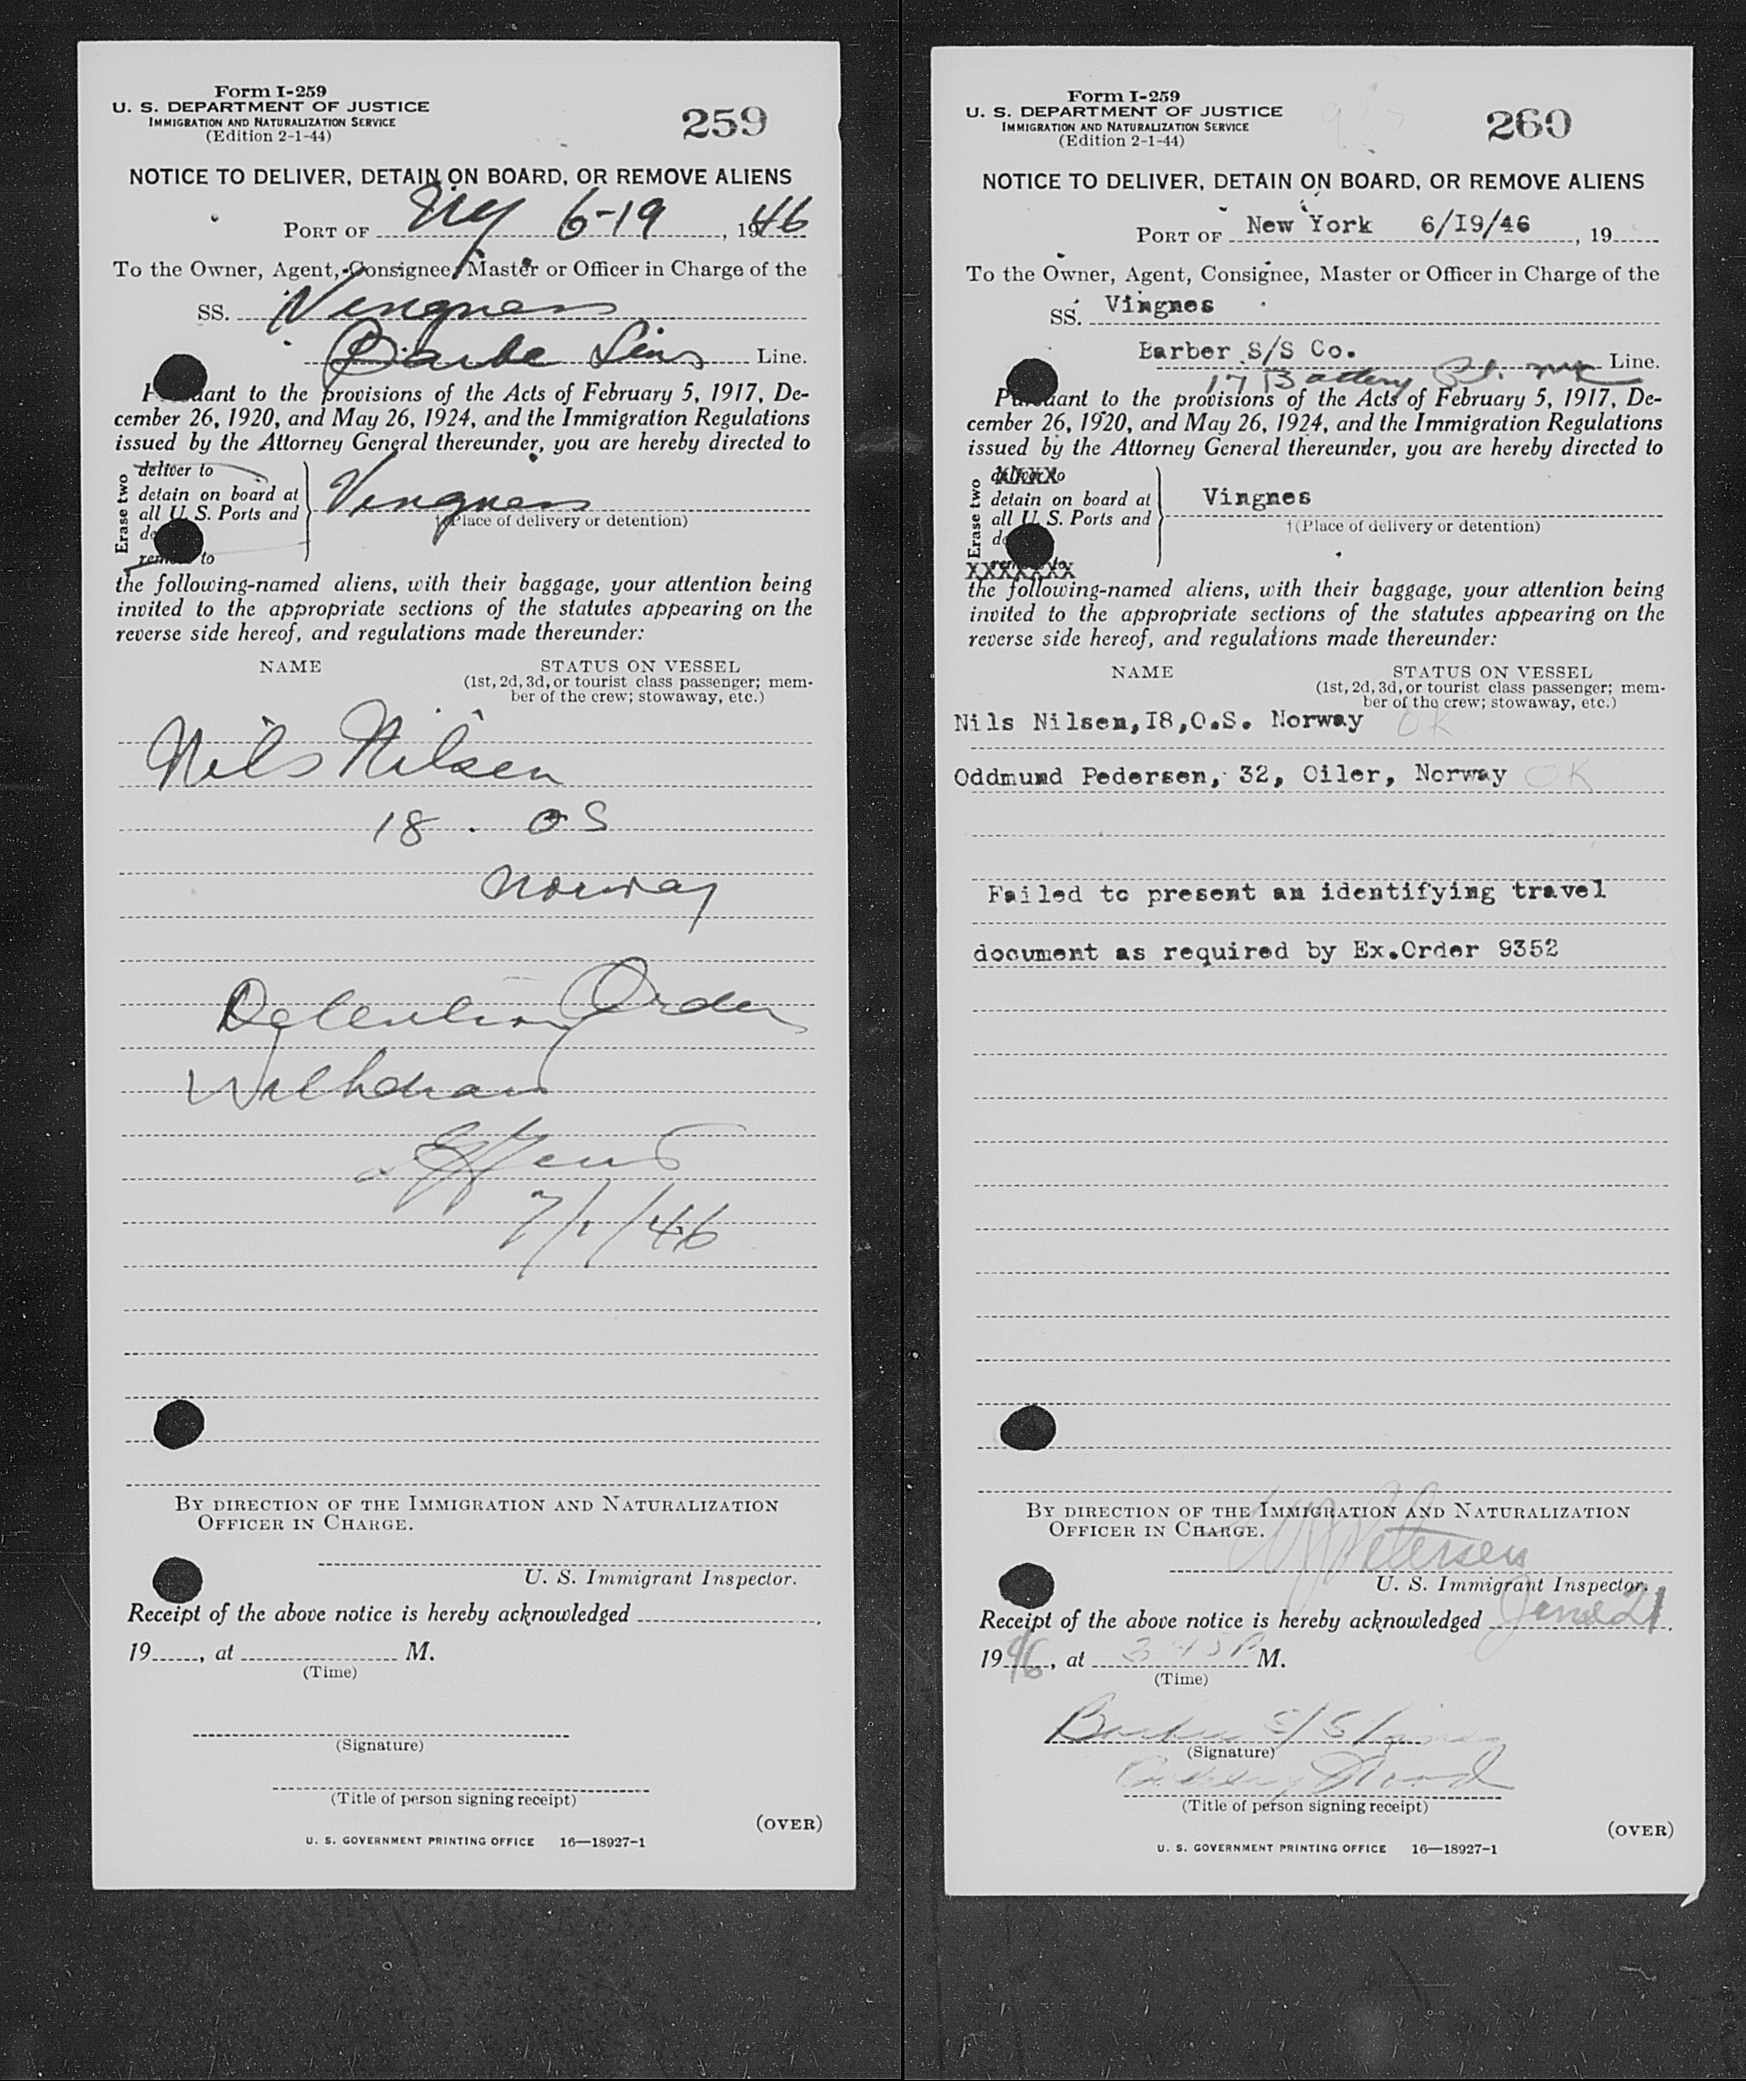 Form I-259
U. S. DEPARTMENT OF JUSTICE
IMMIGRATION AND NATURALIZATION SERVICE
(Edition 2-1-44)
259
NOTICE TO DELIVER, DETAIN ON BOARD, OR REMOVE ALIENS
PORT OF NY 6-19, 1946
To the Owner, Agent, Consignee, Master or Officer in Charge of the
SS. Vingness
Barbe Lins Line.
ant to the provisions of the Acts of February 5, 1917, De-
cember 26, 1920, and May 26, 1924, and the Immigration Regulations
issued by the Attorney General thereunder, you are hereby directed to
Erase two
deliver to
detain on board at
all U. S. Ports and
to
Vingness
†(Place of delivery or detention)
the following-named aliens, with their baggage, your attention being
invited to the appropriate sections of the statutes appearing on the
reverse side hereof, and regulations made thereunder:
NAME STATUS ON VESSEL
(1st, 2d, 3d, or tourist class passenger; mem-
ber of the crew; stowaway, etc.)
Nils Nilsen
18 . OS
Norway
Detention Order
Withdrawn
7/1/46
BY DIRECTION OF THE IMMIGRATION AND NATURALIZATION
OFFICER IN CHARGE.
U. S. Immigrant Inspector.
Receipt of the above notice is hereby acknowledged ,
19 , at M.
(Time)
(Signature)
(Title of person signing receipt)
(OVER)
U. S. GOVERNMENT PRINTING OFFICE 16—18927-1
Form I-259
U. S. DEPARTMENT OF JUSTICE
IMMIGRATION AND NATURALIZATION SERVICE
(Edition 2-1-44)
260
NOTICE TO DELIVER, DETAIN ON BOARD, OR REMOVE ALIENS
PORT OF New York 6/I9/46 , 19
To the Owner, Agent, Consignee, Master or Officer in Charge of the
SS. Vingnes
Barber S/S Co. Line.
17 Battery Pl. NYC
Pursuant to the provisions of the Acts of February 5, 1917, De-
cember 26, 1920, and May 26, 1924, and the Immigration Regulations
issued by the Attorney General thereunder, you are hereby directed to
Erase two
XXXX
detain on board at
all U. S. Ports and
XXXXXXX
Vingnes
†(Place of delivery or detention)
the following-named aliens, with their baggage, your attention being
invited to the appropriate sections of the statutes appearing on the
reverse side hereof, and regulations made thereunder:
NAME STATUS ON VESSEL
(1st, 2d, 3d, or tourist class passenger; mem-
ber of the crew; stowaway, etc.)
Nils Nilsen,I8,O.S. Norway OK
Oddmund Pedersen, 32, Oiler, Norway OK
Failed to present an identifying travel
document as required by Ex.Order 9352
BY DIRECTION OF THE IMMIGRATION AND NATURALIZATION
OFFICER IN CHARGE.
Petersen
U. S. Immigrant Inspector.
Receipt of the above notice is hereby acknowledged June 21,
1946, at 3 45 P M.
(Time)
Barber S/S Lines
(Signature)
Wood
(Title of person signing receipt)
(OVER)
U. S. GOVERNMENT PRINTING OFFICE 16—18927-1